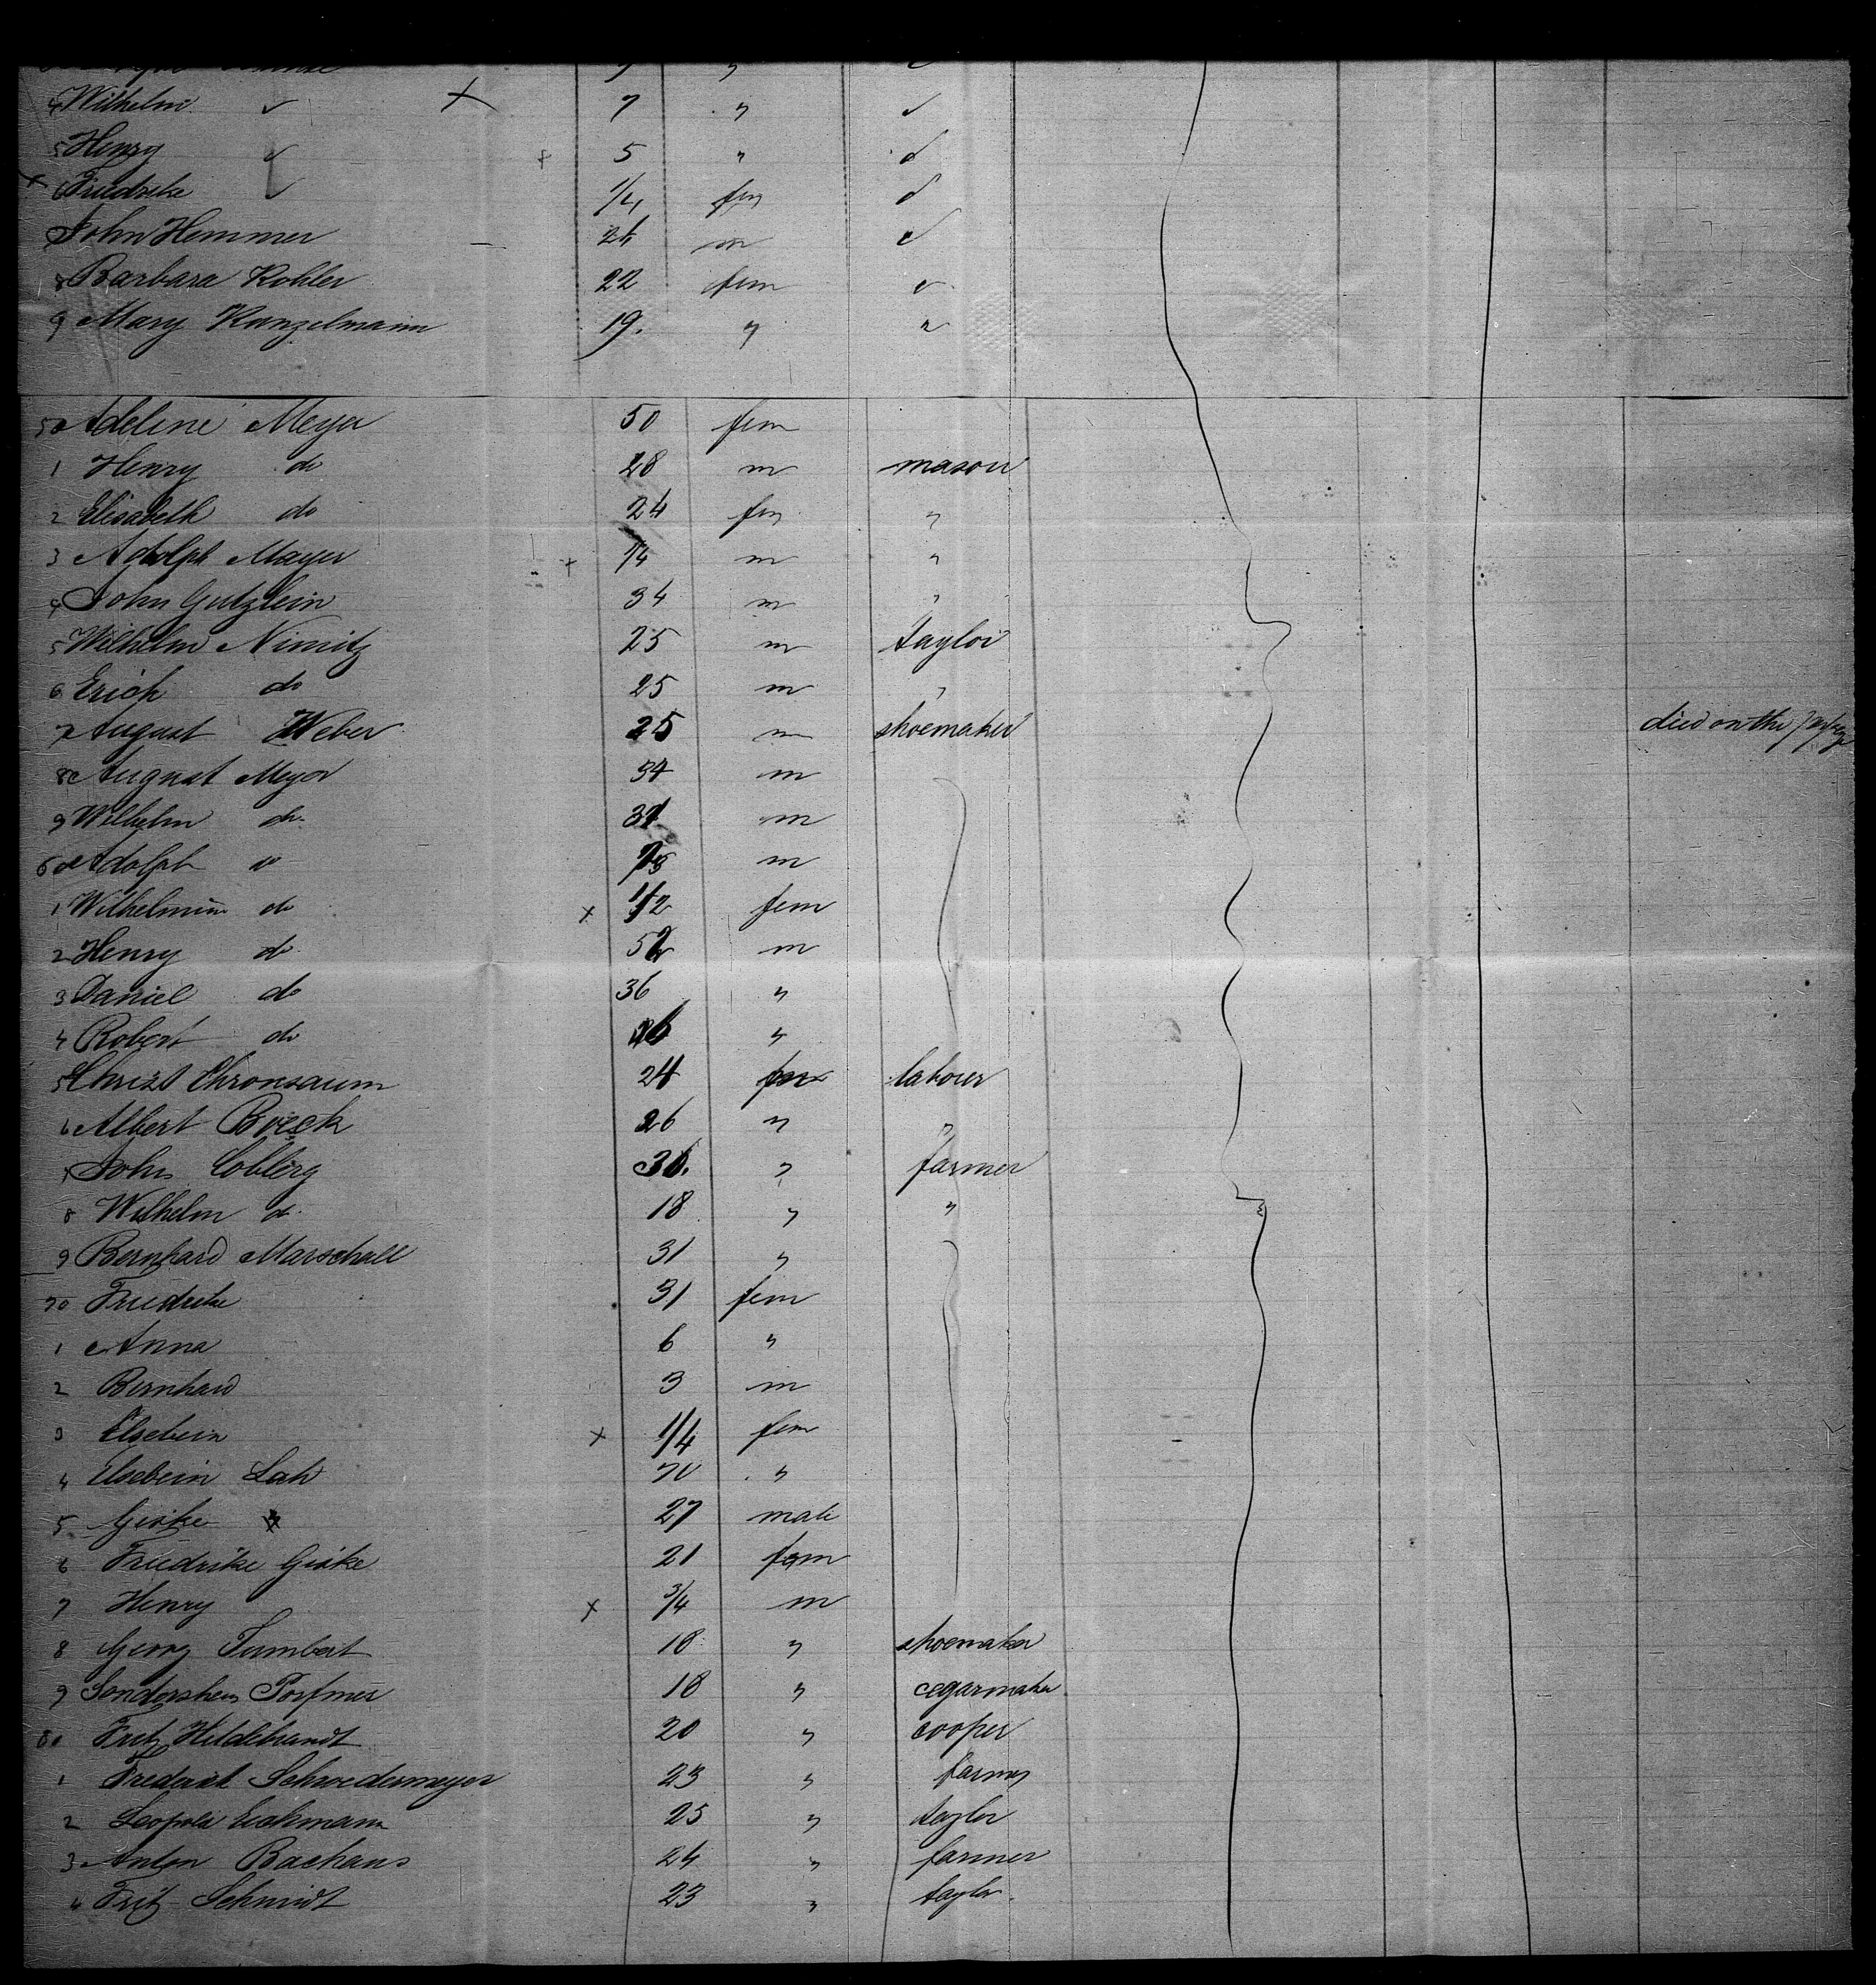 4 Wilhelm 7 "
5 Henry 5 "
6 Friedrike 1/4 fem
7 John Hemmer 24 m
8 Barbara Kohler 22 fem
9 Mary Kanzelmann 19. "
50 Adeline Meyer 50 fem
1 Henry do 28 m mason
2 Elisabeth do 24 fem "
3 Adolph Mayer 1/4 m "
4 John Gutzlein 34 m "
5 Wilhelm Nimitz 25 m taylor
6 Erich do 25 m "
7 August Weber 25 m shoemaker died on the
8 August Meyer 34 m
9 Wilhelm do 31 m
60 Adolph do m
1 Wilhelmine do 1/2 fem
2 Henry do 52 m
3 Daniel do 36 "
4 Robert do "
5 Christ 24 labourer
6 Albert 26 " "
7 John Coberg 36. " farmer
8 Wilhelm do 18 " "
9 Bernhard Marschall 31 "
70 Friedrike 31 fem
1 Anna 6 "
2 Bernhard 3 m
3 Elsebein 1/4 fem
4 Elsebein Lah 70 "
5 Giske 27 male
6 Friedrike Giske 21 fem
7 Henry 3/4 m
8 Georg 18 " shoemaker
9 18 " cegarmaker
80 Fritz Hildebrandt 20 " cooper
1 Schwedermeyer 23 " farmer
2 Leopold 25 " taylor
3 Anton Bachaus 24 " farmer
4 Fritz Schmidt 23 " taylor